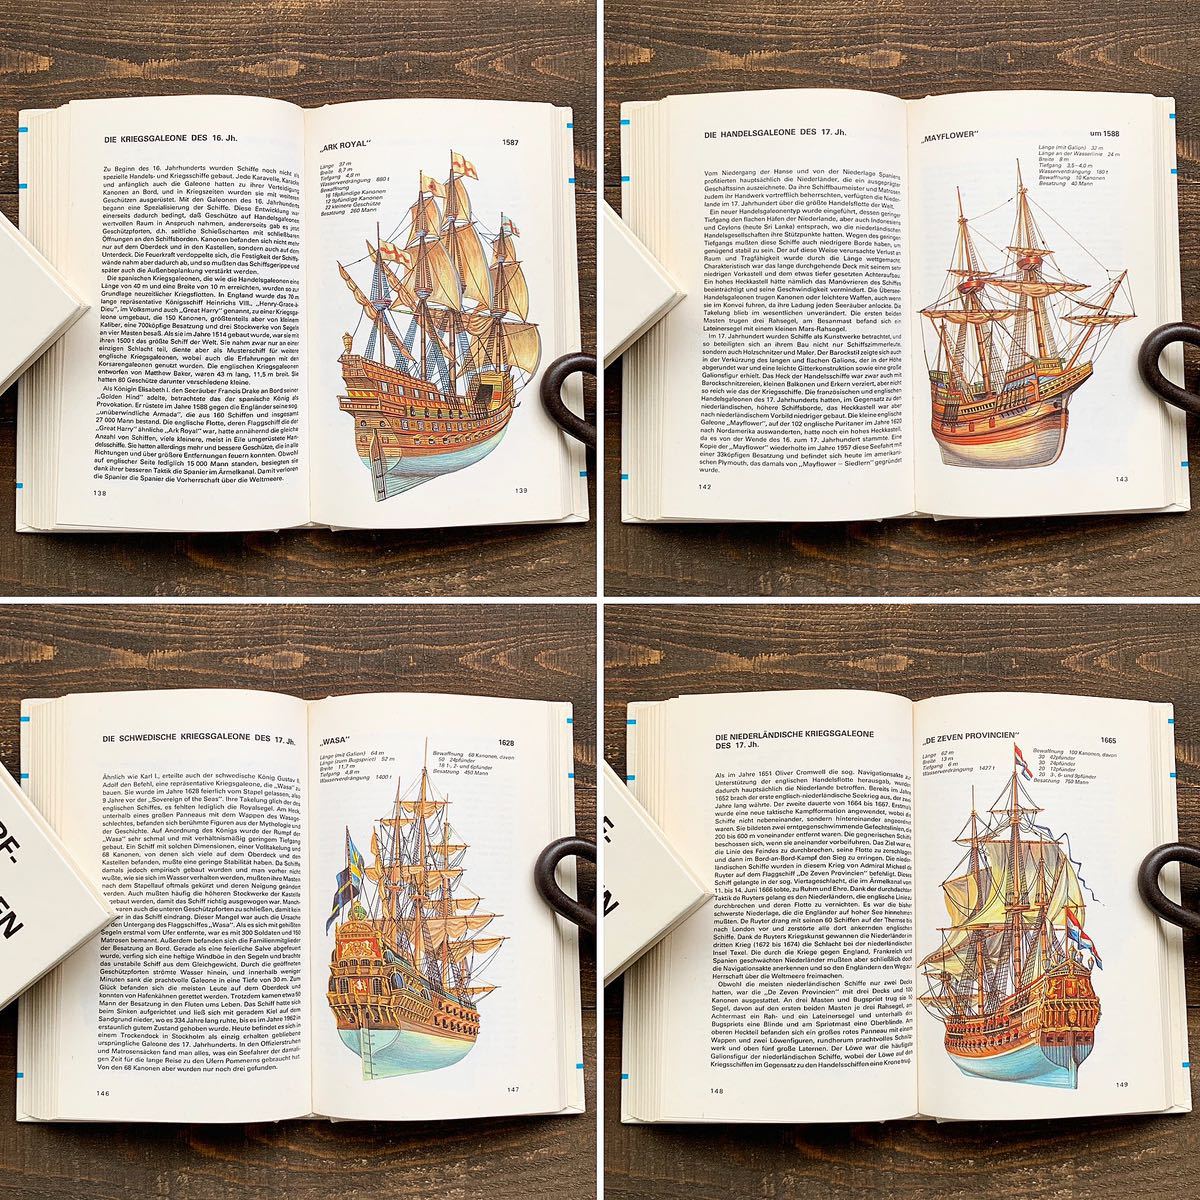 DIE KRIEGSGALEONE DES 16. Jh.
Zu Beginn des 16. Jahrhunderts wurden Schiffe noch nicht als
spezielle Handels- und Kriegsschiffe gebaut. Jede Karavelle, Karacke
und anfänglich auch die Galeone hatten zu ihrer Verteidigung
Kanonen an Bord, und in Kriegszeiten wurden sie mit weiteren
Geschützen ausgerüstet. Mit den Galeonen des 16. Jahrhunderts
begann eine Spezialisierung der Schiffe. Diese Entwicklung war
einerseits dadurch bedingt, daß Geschütze auf Handelsgaleonen
wertvollen Raum in Anspruch nahmen, andererseits gab es jetzt
Geschützpforten, d.h. seitliche Schießscharten mit schließbaren
Öffnungen an den Schiffsborden. Kanonen befanden sich nicht mehr
nur auf dem Oberdeck und in den Kastellen, sondern auch auf dem
Unterdeck. Die Feuerkraft verdoppelte sich, die Festigkeit der Schiffs-
wände nahm aber dadurch ab, und so mußten das Schiffsgerippe und
später auch die Außenbeplankung verstärkt werden.
Die spanischen Kriegsgaleonen, die wie die Handelsgaleonen eine
Länge von 40 m und eine Breite von 10 m erreichten, wurden so zur
Grundlage neuzeitlicher Kriegsflotten. In England wurde das 70 m
lange repräsentative Königsschiff Heinrichs VIII., „Henry-Grace-à-
Dieu", im Volksmund auch „Great Harry" genannt, zu einer Kriegsga-
leone umgebaut, die 150 Kanonen, größtenteils aber von kleinem
Kaliber, eine 700köpfige Besatzung und drei Stockwerke von Segeln
an vier Masten besaß. Als sie im Jahre 1514 gebaut wurde, war sie mit
ihren 1500 t das größte Schiff der Welt. Sie nahm zwar nur an einer
einzigen Schlacht teil, diente aber als Musterschiff für weitere
englische Kriegsgaleonen, wobei auch die Erfahrungen mit den
Korsarengaleonen genutzt wurden. Die englischen Kriegsgaleonen
entworfen von Matthew Baker, waren 43 m lang, 11,5 m breit. Sie
hatten 80 Geschütze darunter verschiedene kleine.
Als Königin Elisabeth I. den Seeräuber Francis Drake an Bord seiner
„Golden Hind" adelte, betrachtete das der spanische König als
Provokation. Er rüstete im Jahre 1588 gegen die Engländer seine sog.
„unüberwindliche Armada", die aus 160 Schiffen und insgesamt
27 000 Mann bestand. Die englische Flotte, deren Flaggschiff die der
„Great Harry" ähnliche „Ark Royal" war, hatte annähernd die gleiche
Anzahl von Schiffen, viele kleinere, meist in Eile umgerüstete Han-
delsschiffe. Sie hatten allerdings mehr und bessere Geschütze, die in alle
Richtungen und über größere Entfernungen feuern konnten. Obwohl
auf englischer Seite lediglich 15 000 Mann standen, besiegten sie
dank ihrer besseren Taktik die Spanier im Ärmelkanal. Damit verloren
die Spanier die Vorherrschaft über die Weltmeere.
138
„ARK ROYAL" 1587
Länge 37 m
Breite 8,7 m
Tiefgang 4,9 m
Wasserverdrängung 680 t
Bewaffnung
16 18pfündige Kanonen
12 9pfündige Kanonen
22 kleinere Geschütze
Besatzung 260 Mann
139
DIE HANDELSGALEONE DES 17. Jh.
Vom Niedergang der Hanse und von der Niederlage Spaniens
profitierten hauptsächlich die Niederländer, die ein ausgeprägter
Geschäftssinn auszeichnete. Da ihre Schiffbaumeister und Matrosen
zudem ihr Handwerk vortrefflich beherrschten, verfügten die Nieder-
lande im 17. Jahrhundert über die größte Handelsflotte der Welt.
Ein neuer Handelsgaleonentyp wurde eingeführt, dessen geringer
Tiefgang den flachen Häfen der Niederlande, aber auch Indonesiens
und Ceylons (heute Sri Lanka) entsprach, wo die niederländischen
Handelsgesellschaften ihre Stützpunkte hatten. Wegen des geringen
Tiefgangs mußten diese Schiffe auch niedrigere Borde haben, um
genügend stabil zu sein. Der auf diese Weise verursachte Verlust an
Raum und Tragfähigkeit wurde durch die Länge wettgemacht.
Charakteristisch war das lange durchgehende Deck mit seinem sehr
niedrigen Vorkastell und dem etwas tiefer gesetzten Achteraufbau.
Ein hohes Heckkastell hätte nämlich das Manövrieren des Schiffs
beeinträchtigt und seine Geschwindigkeit vermindert. Die Übersee-
Handelsgaleonen trugen Kanonen oder leichtere Waffen, auch wenn
sie im Konvoi fuhren, da ihre Ladung jeden Seeräuber anlockte. Die
Takelung blieb im wesentlichen unverändert. Die ersten beiden
Masten trugen drei Rahsegel, am Besanmast befand sich ein
Lateinersegel mit einem kleinen Mars-Rahsegel.
Im 17. Jahrhundert wurden Schiffe als Kunstwerke betrachtet, und
so beteiligten sich an ihrem Bau nicht nur Schiffszimmerleute,
sondern auch Holzschnitzer und Maler. Der Barockstil zeigte sich auch
in der Verkürzung des langen und flachen Galions, der in der Höhe
abgerundet war und eine leichte Gitterkonstruktion sowie eine große
Galionsfigur erhielt. Das Heck der Handelsschiffe war zwar auch mit
Barockschnitzereien, kleinen Balkonen und Erkern verziert, aber nicht
so reich wie das der Kriegsschiffe. Die französischen und englischen
Handelsgaleonen des 17. Jahrhunderts hatten, im Gegensatz zu den
niederländischen, höhere Schiffsborde, das Heckkastell war aber
nach niederländischem Vorbild niedriger gebaut. Die kleine englische
Galeone „Mayflower", auf der 102 englische Puritaner im Jahre 1620
nach Nordamerika auswanderten, hatte noch ein hohes Heckkastell,
da es von der Wende des 16. zum 17. Jahrhundert stammte. Eine
Kopie der „Mayflower" wiederholte im Jahre 1957 diese Seefahrt mit
einer 33köpfigen Besatzung und befindet sich heute im amerikani-
schen Plymouth, das damals von „Mayflower – Siedlern" gegründet
wurde.
142
„MAYFLOWER" um 1588
Länge (mit Galion) 32 m
Länge an der Wasserlinie 24 m
Breite 8 m
Tiefgang 3,5–4,0 m
Wasserverdrängung 180 t
Bewaffnung 10 Kanonen
Besatzung 40 Mann
143
DIE SCHWEDISCHE KRIEGSGALEONE DES 17. Jh.
Ähnlich wie Karl I., erteilte auch der schwedische König Gustav II.
Adolf den Befehl, eine repräsentative Kriegsgaleone, die „Wasa" zu
bauen. Sie wurde im Jahre 1628 feierlich vom Stapel gelassen, also
9 Jahre vor der „Sovereign of the Seas". Ihre Takelung glich der des
englischen Schiffes, es fehlten lediglich die Royalsegel. Am Heck,
unterhalb eines großen Panneaus mit dem Wappen des Wasage-
schlechtes, befanden sich berühmte Figuren aus der Mythologie und
der Geschichte. Auf Anordnung des Königs wurde der Rumpf der
„Wasa" sehr schmal und mit verhältnismäßig geringem Tiefgang
gebaut. Ein Schiff mit solchen Dimensionen, einer Volltakelung und
68 Kanonen, von denen sich viele auf dem Oberdeck und den
Kastellen befanden, mußte eine geringe Stabilität haben. Da Schiffe
damals jedoch empirisch gebaut wurden und man vorher nicht
wußte, wie sie sich im Wasser verhalten werden, mußten ihre Masten
nach dem Stapellauf oftmals gekürzt und deren Neigung geändert
werden. Auch mußten häufig die höheren Stockwerke der Kastelle
entfernt werden, damit das Schiff richtig ausgewogen war. Manch-
waren auch die unteren Geschützpforten zu schließen, damit kein
er in das Schiff eindrang. Dieser Mangel war auch die Ursache
den Untergang des Flaggschiffes „Wasa". Als es sich mit gehißten
Segeln erstmal vom Ufer entfernte, war es mit 300 Soldaten und 150
Matrosen bemannt. Außerdem befanden sich die Familienmitglieder
der Besatzung an Bord. Gerade als eine feierliche Salve abgefeuert
wurde, verfing sich eine heftige Windböe in den Segeln und brachte
das unstabile Schiff aus dem Gleichgewicht. Durch die geöffneten
Geschützpforten strömte Wasser hinein, und innerhalb weniger
Minuten sank die prachtvolle Galeone in eine Tiefe von 30 m. Zum
Glück befanden sich die meisten Leute auf dem Oberdeck und
konnten von Hafenkähnen gerettet werden. Trotzdem kamen etwa 50
Mann der Besatzung in den Fluten ums Leben. Das Schiff hatte sich
beim Sinken aufgerichtet und ließ sich mit geradem Kiel auf dem
Sandgrund nieder, wo es 334 Jahre lang ruhte, bis es im Jahre 1962 in
erstaunlich gutem Zustand gehoben wurde. Heute befindet es sich in
einem Trockendock in Stockholm als einzig erhalten gebliebene
ursprüngliche Galeone des 17. Jahrhunderts. In den Offizierstruhen
und Matrosensäcken fand man alles, was ein Seefahrer der damali-
gen Zeit für die lange Reise zu den Ufern Pommerns gebraucht hat.
Von den 68 Kanonen aber wurden nur noch drei gefunden.
146
„WASA" 1628
Länge (mit Galion) 64 m
Länge (zum Bugspriet) 52 m
Breite 11,7 m
Tiefgang 4,8 m
Wasserverdrängung 1400 t
Bewaffnung 68 Kanonen, davon
50 24pfünder
18 1-, 2- und 6pfünder
Besatzung 450 Mann
147
DIE NIEDERLÄNDISCHE KRIEGSGALEONE
DES 17. Jh.
Als im Jahre 1651 Oliver Cromwell die sog. Navigationsakte zur
Unterstützung der englischen Handelsflotte herausgab, wurden
dadurch hauptsächlich die Niederlande betroffen. Bereits im Jahre
1652 brach der erste englisch-niederländische Seekrieg aus, der zwei
Jahre lang währte. Der zweite dauerte von 1664 bis 1667. Erstmals
wurde eine neue taktische Kampfformation angewendet, wobei die
Schiffe nicht nebeneinander, sondern hintereinander angeordnet
waren. Sie bildeten zwei entgegenschwimmende Gefechtslinien, die
200 bis 600 m voneinander entfernt waren. Die gegnerischen Schiffe
beschossen sich, wenn sie aneinander vorbeifuhren. Das Ziel war es,
die Linie des Feindes zu durchbrechen, seine Flotte zu zerschlagen
und dann im Bord-an-Bord-Kampf den Sieg zu erringen. Die nieder-
ländischen Schiffe wurden in diesem Krieg von Admiral Michael de
Ruyter auf dem Flaggschiff „De Zeven Provincien" befehligt. Dieses
Schiff gelangte in der sog. Viertageschlacht, die im Ärmelkanal vom
11. bis 14. Juni 1666 tobte, zu Ruhm und Ehre. Dank der durchdachten
Taktik de Ruyters gelang es den Niederländern, die englische Linie zu
durchbrechen und deren Flotte zu vernichten. Es war die bisher
schwerste Niederlage, die die Engländer auf hoher See hinnehmen
mußten. De Ruyter drang mit seinen 60 Schiffen auf der Themse bis
nach London vor und zerstörte alle dort ankernden englischen
Schiffe. Dank de Ruyters Kriegskunst gewannen die Niederländer im
dritten Krieg (1672 bis 1674) die Schlacht bei der niederländischen
Insel Texel. Die durch die Kriege gegen England, Frankreich und
Spanien geschwächten Niederländer mußten aber schließlich doch
die Navigationsakte anerkennen und so den Engländern den Weg zur
Herrschaft über die Weltmeere freimachen.
Obwohl die meisten niederländischen Schiffe nur zwei Decks
hatten, war die „De Zeven Provincien" mit drei Decks und 100
Kanonen ausgestattet. An drei Masten und Bugspriet trug sie 10
Segel, davon auf den ersten beiden Masten je drei Rahsegel, am
Achtermast ein Rah- und ein Lateinersegel und unterhalb des
Bugspriets eine Blinde und am Sprietmast eine Oberblinde. Am
oberen Heckteil befanden sich ein großes rotes Panneau mit einem
Wappen und zwei Löwenfiguren, rundherum prachtvolles Schnitz-
werk und oben fünf große Laternen. Der Löwe war die häufigste
Galionsfigur der niederländischen Schiffe, wobei der Löwe auf den
Kriegsschiffen im Gegensatz zu den Handelsschiffen eine Krone trug.
148
„DE ZEVEN PROVINCIEN" 1665
Länge 62 m
Breite 13 m
Tiefgang 6 m
Wasserverdrängung 1427 t
Bewaffnung 100 Kanonen, davon
30 62pfünder
30 24pfünder
20 12pfünder
20 3-, 6- und 9pfünder
Besatzung 750 Mann
149